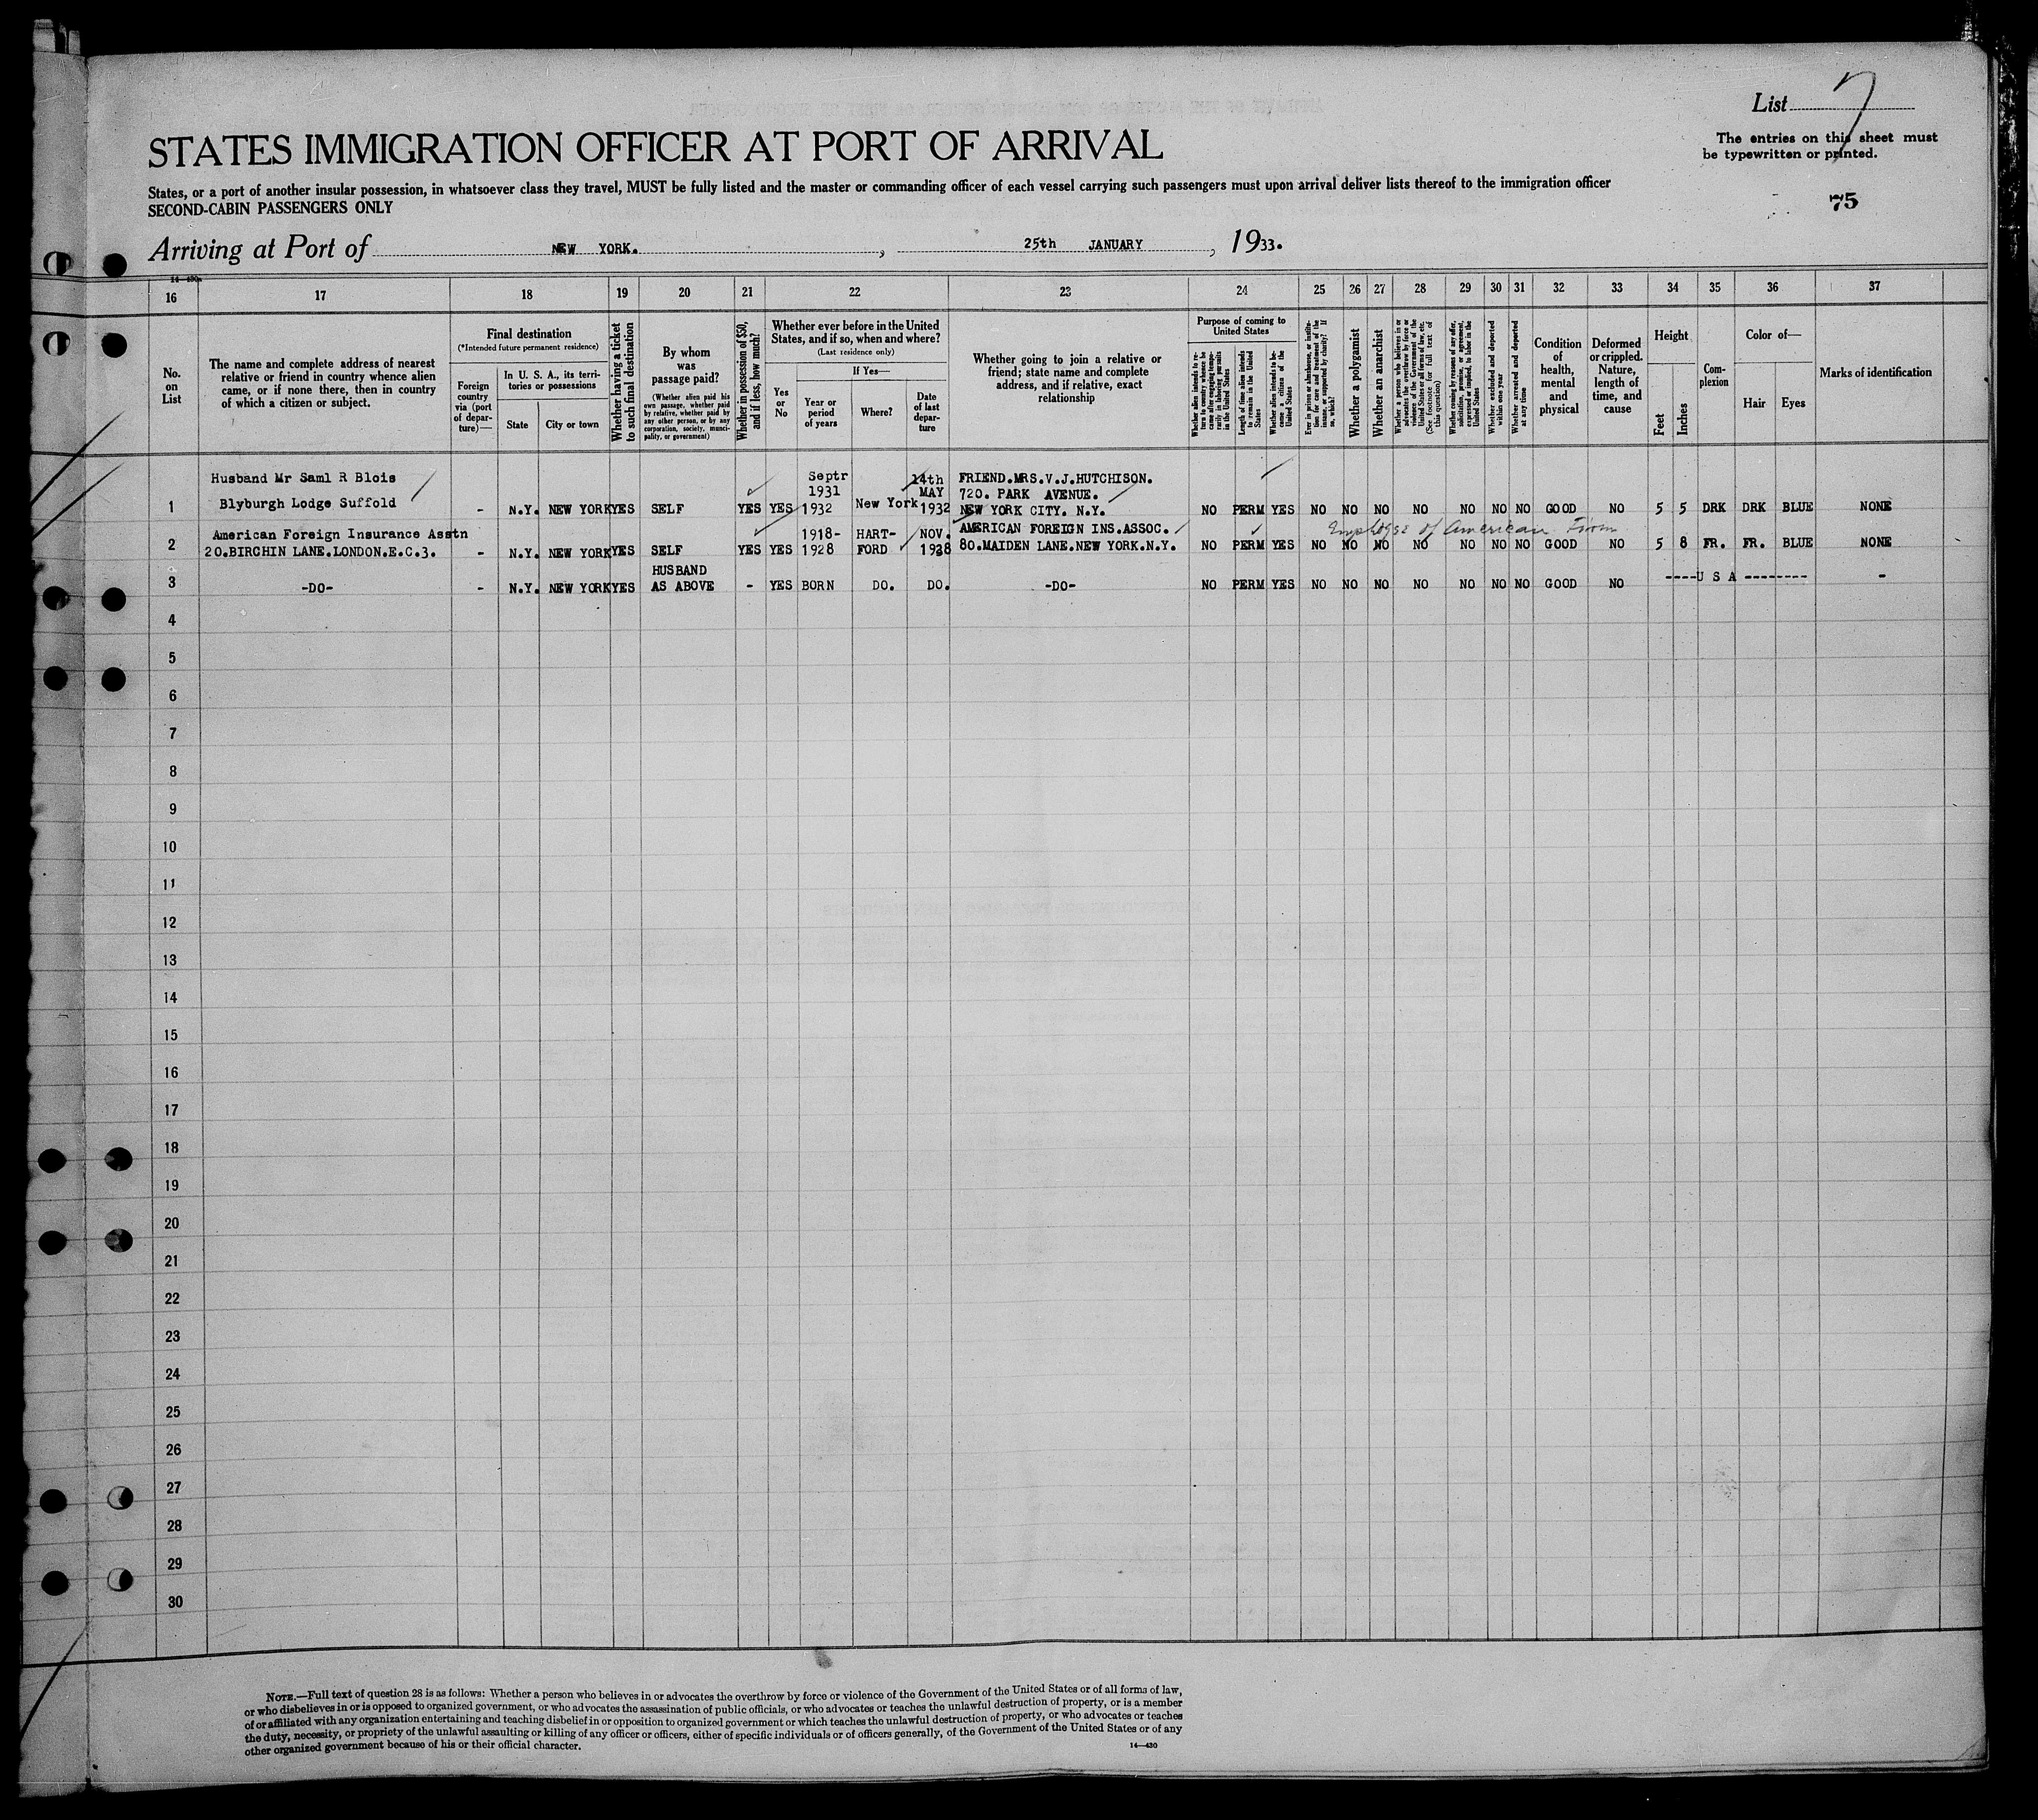 List 7
The entries on this sheet must
be typewritten or printed.
STATES IMMIGRATION OFFICER AT PORT OF ARRIVAL
States, or a port of another insular possession, in whatsoever class they travel, MUST be fully listed and the master or commanding officer of each vessel carrying such passengers must upon arrival deliver lists thereof to the immigration officer
SECOND-CABIN PASSENGERS ONLY
75
Arriving at Port of NEW YORK. , 25th JANUARY , 1933.
14-430
16 17 18 19 20 21 22 23 24 25 26 27 28 29 30 31 32 33 34 35 36 37
No.
on
List
The name and complete address of nearest
relative or friend in country whence alien
came, or if none there, then in country
of which a citizen or subject.
Final destination
(*Intended future permanent residence)
Foreign
country
via (port
of depar-
ture)—
In U. S. A., its terri-
tories or possessions
State
City or town
Whether having a ticket
to such final destination
By whom
was
passage paid?
(Whether alien paid his
own passage, whether paid
by relative, whether paid by
any other person, or by any
corporation, society, munici-
pality, or government)
Whether in possession of $50,
and if less, how much?
Whether ever before in the United
States, and if so, when and where?
(Last residence only)
Yes
or
No
If Yes—
Year or
period
of years
Where?
Date
of last
depar-
ture
Whether going to join a relative or
friend; state name and complete
address, and if relative, exact
relationship
Purpose of coming to
United States
Whether alien intends to re-
turn to country whence he
came after engaging tempo-
rarily in laboring pursuits
in the United States
Length of time alien intends
to remain in the United
States
Whether alien intends to be-
come a citizen of the
United States
Ever in prison or almshouse, or institu-
tion for care and treatment of the
insane, or supported by charity? If
so, which?
Whether a polygamist
Whether an anarchist
Whether a person who believes in or
advocates the overthrow by force or
violence of the Government of the
United States or all forms of law, etc.
(See footnote for full text of
this question)
Whether coming by reasons of any offer,
solicitation, promise, or agreement,
expressed or implied, to labor in the
United States
Whether excluded and deported
within one year
Whether arrested and deported
at any time
Condition
of
health,
mental
and
physical
Deformed
or crippled.
Nature,
length of
time, and
cause
Height
Feet
Inches
Com-
plexion
Color of—
Hair
Eyes
Marks of identification
Husband Mr Saml R Blois Septr 14th FRIEND.MRS.V.J.HUTCHISON.
Blyburgh Lodge Suffold 1931 MAY 720. PARK AVENUE.
1 - N.Y. NEW YORK YES SELF YES YES 1932 New York 1932 NEW YORK CITY. N.Y. NO PERM YES NO NO NO NO NO NO NO GOOD NO 5 5 DRK DRK BLUE NONE
American Foreign Insurance Asstn 1918- HART- NOV. AMERICAN FOREIGN INS.ASSOC. Employee of American Firm
2 20.BIRCHIN LANE.LONDON.E.C.3. - N.Y. NEW YORK YES SELF YES YES 1928 FORD 1928 80.MAIDEN LANE.NEW YORK.N.Y. NO PERM YES NO NO NO NO NO NO NO GOOD NO 5 8 FR. FR. BLUE NONE
HUSBAND
3 -DO- - N.Y. NEW YORK YES AS ABOVE - YES BORN DO. DO. -DO- NO PERM YES NO NO NO NO NO NO NO GOOD NO ----U S A -------- -
4
5
6
7
8
9
10
11
12
13
14
15
16
17
18
19
20
21
22
23
24
25
26
27
28
29
30
NOTE.—Full text of question 28 is as follows: Whether a person who believes in or advocates the overthrow by force or violence of the Government of the United States or of all forms of law,
or who disbelieves in or is opposed to organized government, or who advocates the assassination of public officials, or who advocates or teaches the unlawful destruction of property, or is a member
of or affiliated with any organization entertaining and teaching disbelief in or opposition to organized government or which teaches the unlawful destruction of property, or who advocates or teaches
the duty, necessity, or propriety of the unlawful assaulting or killing of any officer or officers, either of specific individuals or of officers generally, of the Government of the United States or of any
other organized government because of his or their official character.
14—430